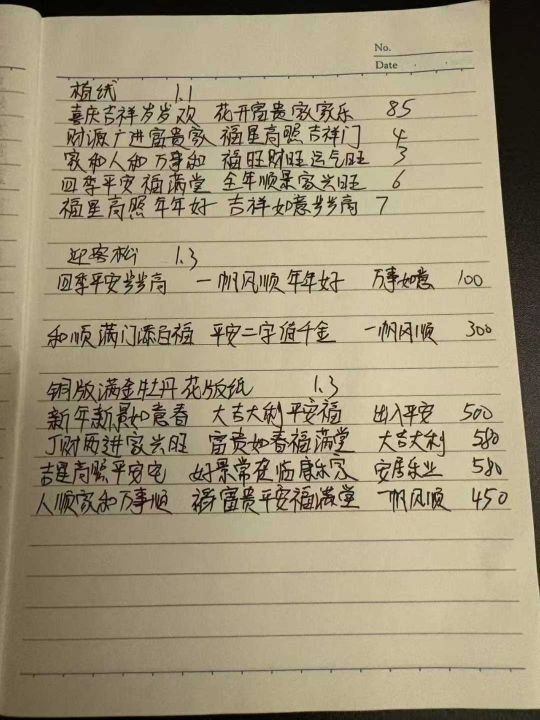 No.
Date
植绒 1.1
喜庆吉祥岁岁欢 花开富贵家家乐 85
财源广进富贵家 福星高照吉祥门 4
家和人和万事和 福旺财旺运气旺 3
四季平安福满堂 全年顺景家兴旺 6
福星高照年年好 吉祥如意步步高 7
迎客松 1.3
四季平安步步高 一帆风顺年年好 万事如意 100
和顺满门添百福 平安二字值千金 一帆风顺 300
铜版满金牡丹花版纸 1.3
新年新景如意春 大吉大利平安福 出入平安 500
丁财两进家兴旺 富贵如春福满堂 大吉大利 580
吉星高照平安宅 好景常在临康乐家 安居乐业 580
人顺家和万事顺 富贵平安福满堂 一帆风顺 450